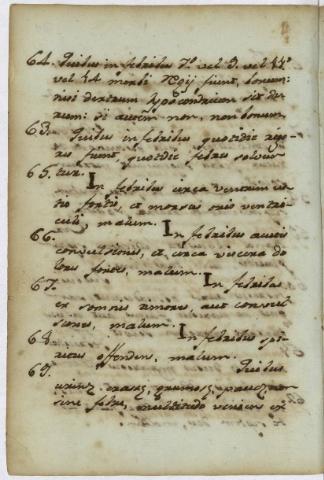 64. Quibus in febribus 7.º vel 9. vel 11.º
vel 14 morbi Regij fiunt, bonum:
nisi dextrum hypocondrium sit du
rum: si autem non, non bonum.
63. Quibus in febribus quotidie rigo
res fiunt, quotidie febres solvun
65. tur. In febribus circa ventrem
fortis, et morsus oris ventri
culi, malum. In febribus acutis
66. convulsiones, et circa viscera do
lores fortes, malum. In febribus
67.
ex somnis timores, aut convul
siones, malum. In febribus spi
68.
ritus offendens, malum.
69. Quibus
urinæ crassæ, grumosæ, paucæ, non
sine febre, multitudo veniens ex